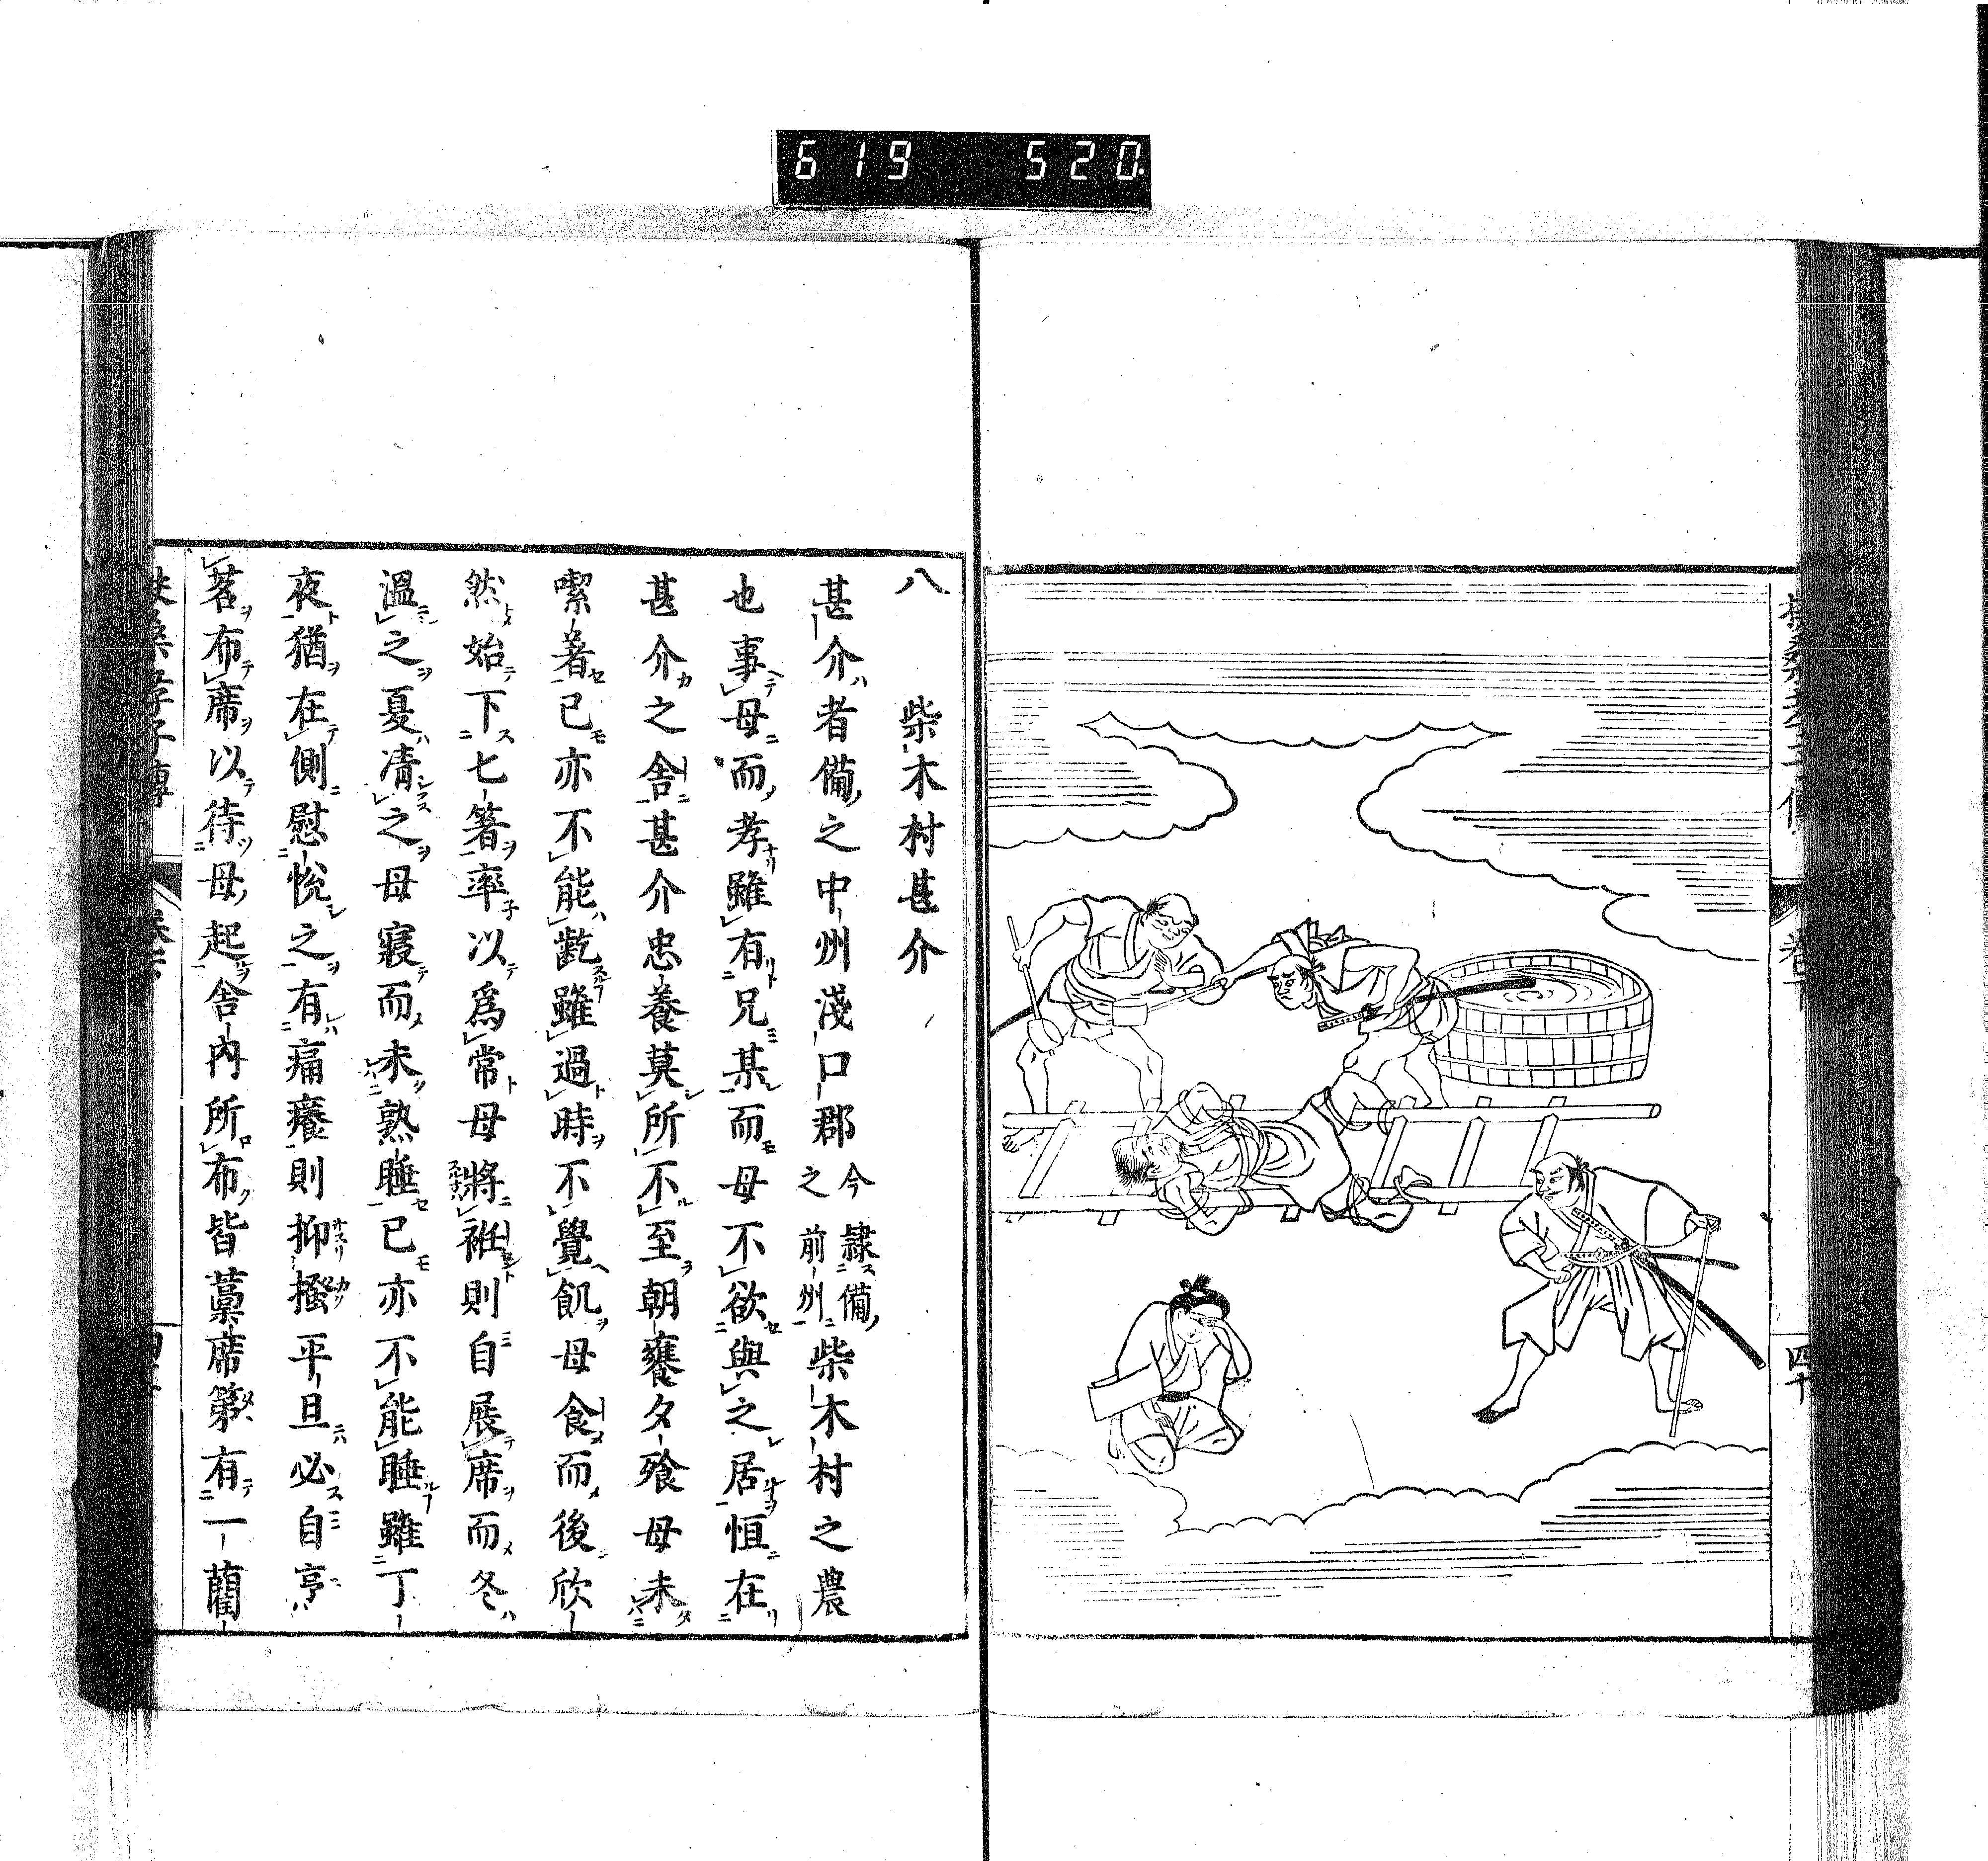 619 520
四十
八 柴木村甚介
甚介者備之中州淺口郡今隷備之前州柴木村之農
也事母而孝雖有兄某而母不欲與之居恒在
甚介之舍甚介忠養莫所不至朝饔夕飧母未
喫著已亦不能齕雖過時不覺飢母食而後欣
然始下七箸率以爲常母將衽則自展席而冬
溫之夏凊之母寢而未熟睡已亦不能睡雖丁
夜猶在側慰悅之有痛癢則抑搔平旦必自亨
茗布席以待母起舍内所布皆藁席第有一藺
扶桑孝子傳